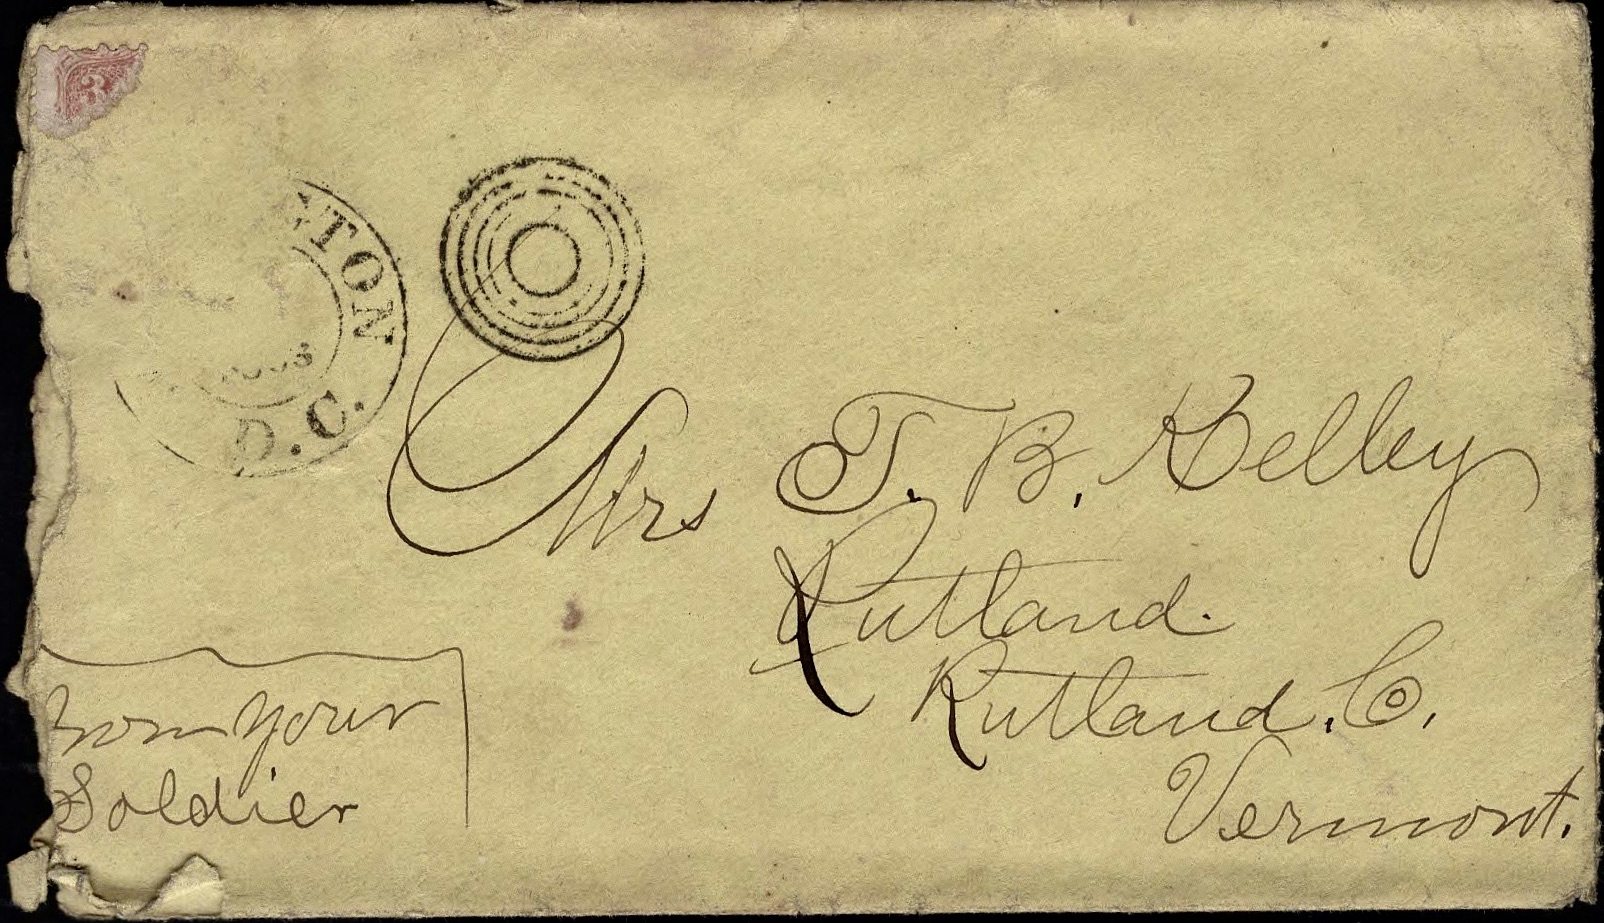 3
TON
D. C.
Mrs T. B. Kelley
Rutland.
Rutland. Co,
Vermont.
From your
Soldier